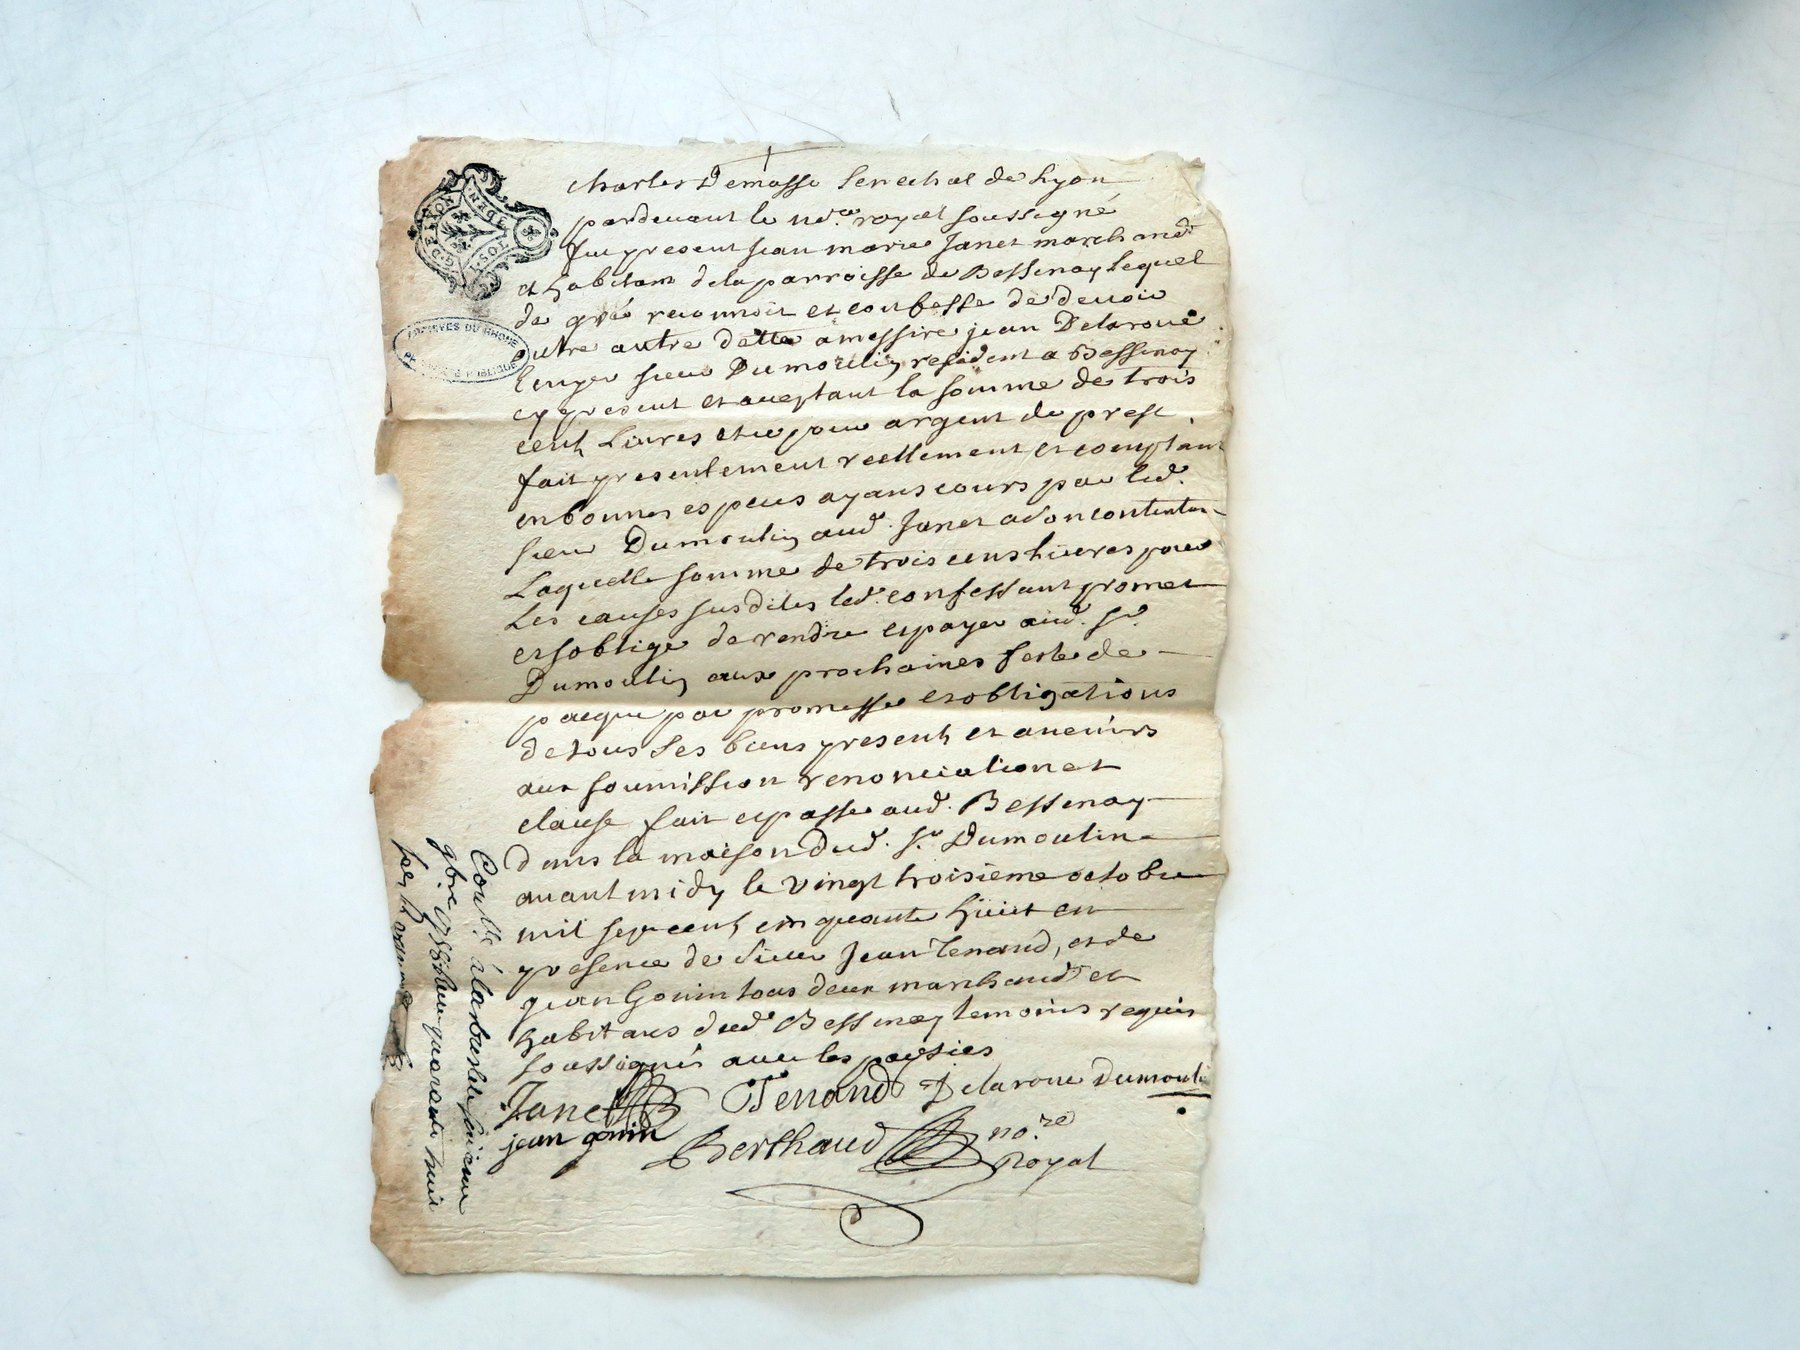 charles Demasso Senechal de Lyon
pardevant le no.re royal soussigné
fut present jean marie Janet marchand
et habitant de la parroisse de Bessenay lequel
de gré reconnoit et confesse de devoir
outre autre dette a messire jean Delaroue
Ecuyer sieur Dumoulin resident a Bessenay
cy present et aceptant la somme de trois
cent Livres et ce pour argent de prest
fait presentement reellement et comptant
en bonnes especes ayans cours par led.
sieur Dumoulin aud. Janet a son contentem
Laquelle somme de trois cens livres pour
Les causes susdites led. confessant promet
et soblige de rendre et payer aud. Sr.
Dumoulin aux prochaines feste de
pacque par promesse et obligations
de tous ses biens present et avenirs
aux soumission renonciation et
clause fait et passé aud. Bessenay
dans la maison dud. Sr. Dumoulin
avant midy le vingt troisieme octobre
mil sept cent cinquante huit en
presence de sieur Jean Tenand, et de
jean Gonin tous deux marchand et
habitans dud. Bessenay temoins requis
soussignés avec les parties
Janet Tenand Delaroue Dumouli
jean gonin
Berthaud no.re
Royal
Con.llé à larbresle
gbre quarante huit
GEN. DE LYON
ARCHIVES DU RHONE